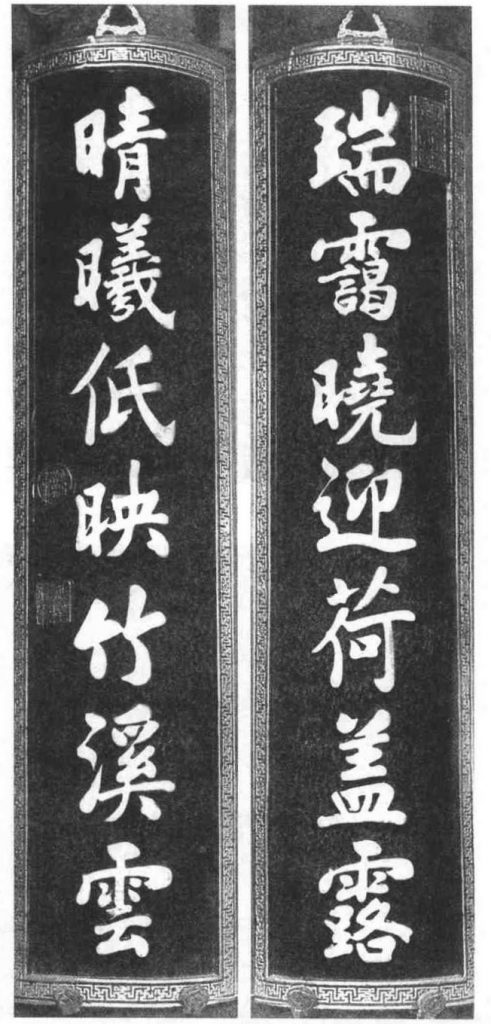 瑞靄曉迎荷盖露
晴曦低映竹溪雲